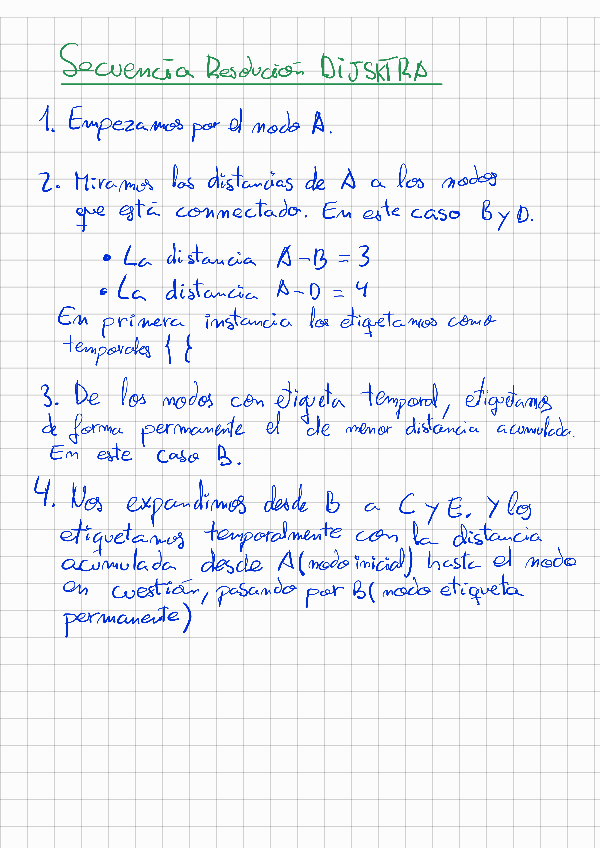 Secuencia Resolución DIJSKTRA
1. Empezamos por el nodo A.
2. Miramos las distancias de A a los nodos
que está connectado. En este caso B y D.
• La distancia A-B = 3
• La distancia A-D = 4
En primera instancia los etiquetamos como
temporales { }
3. De los nodos con etiqueta temporal, etiquetamos
de forma permanente el de menor distancia acumulada.
En este caso B.
4. Nos expandimos desde B a C y E. Y los
etiquetamos temporalmente con la distancia
acumulada desde A (nodo inicial) hasta el nodo
en cuestión, pasando por B (nodo etiqueta
permanente)